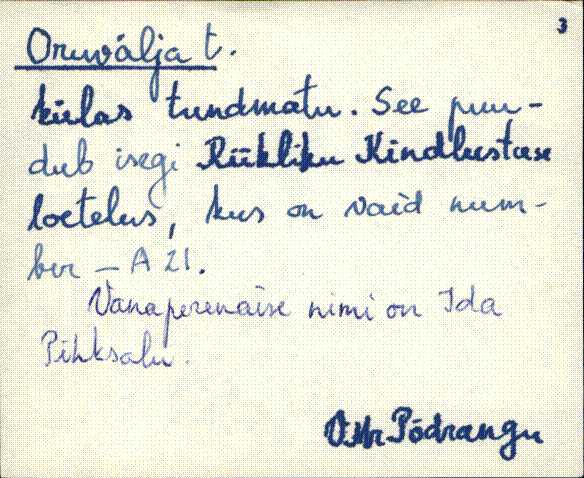 3
Oruvälja t.
külas tundmatu. See puu-
dub isegi Riikliku Kindlustuse
loetelus, kus on vaid num-
ber – A 21.
Vanaperenaise nimi on Ida
Pihksalu.
Põdrangu